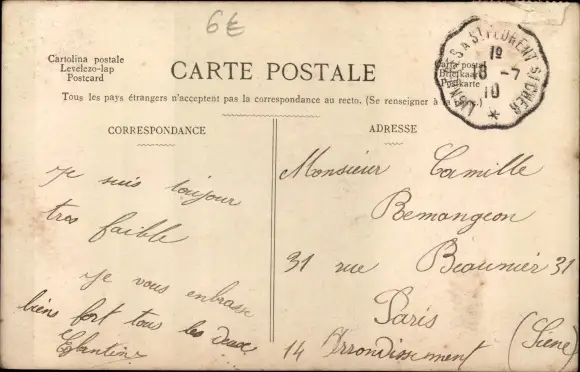 6€
Cartolina postale
Levelezo-lap
Postcard
CARTE POSTALE
Carta postal
Briefkaart
Postkarte
Tous les pays étrangers n'acceptent pas la correspondance au recto. (Se renseigner à la
A ST FLORENT S/CHER
19
8 -7
10
CORRESPONDANCE
Je suis toujour
tres faible
Je vous enbrasse
bien fort tous les deux
Eglantine
ADRESSE
Monsieur Camille
Bemangeon
31 rue Beaunier 31
Paris
14 Arrondissement (Siene)